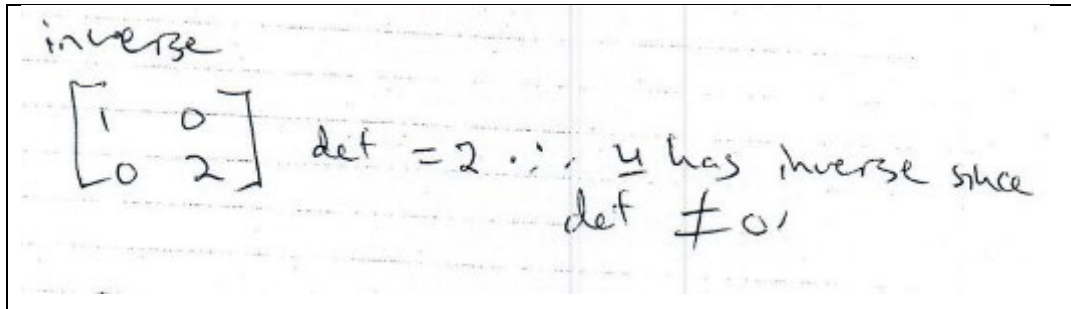 inverse
[1 0
0 2] det = 2 ∴ u has inverse since
det ≠ 0.